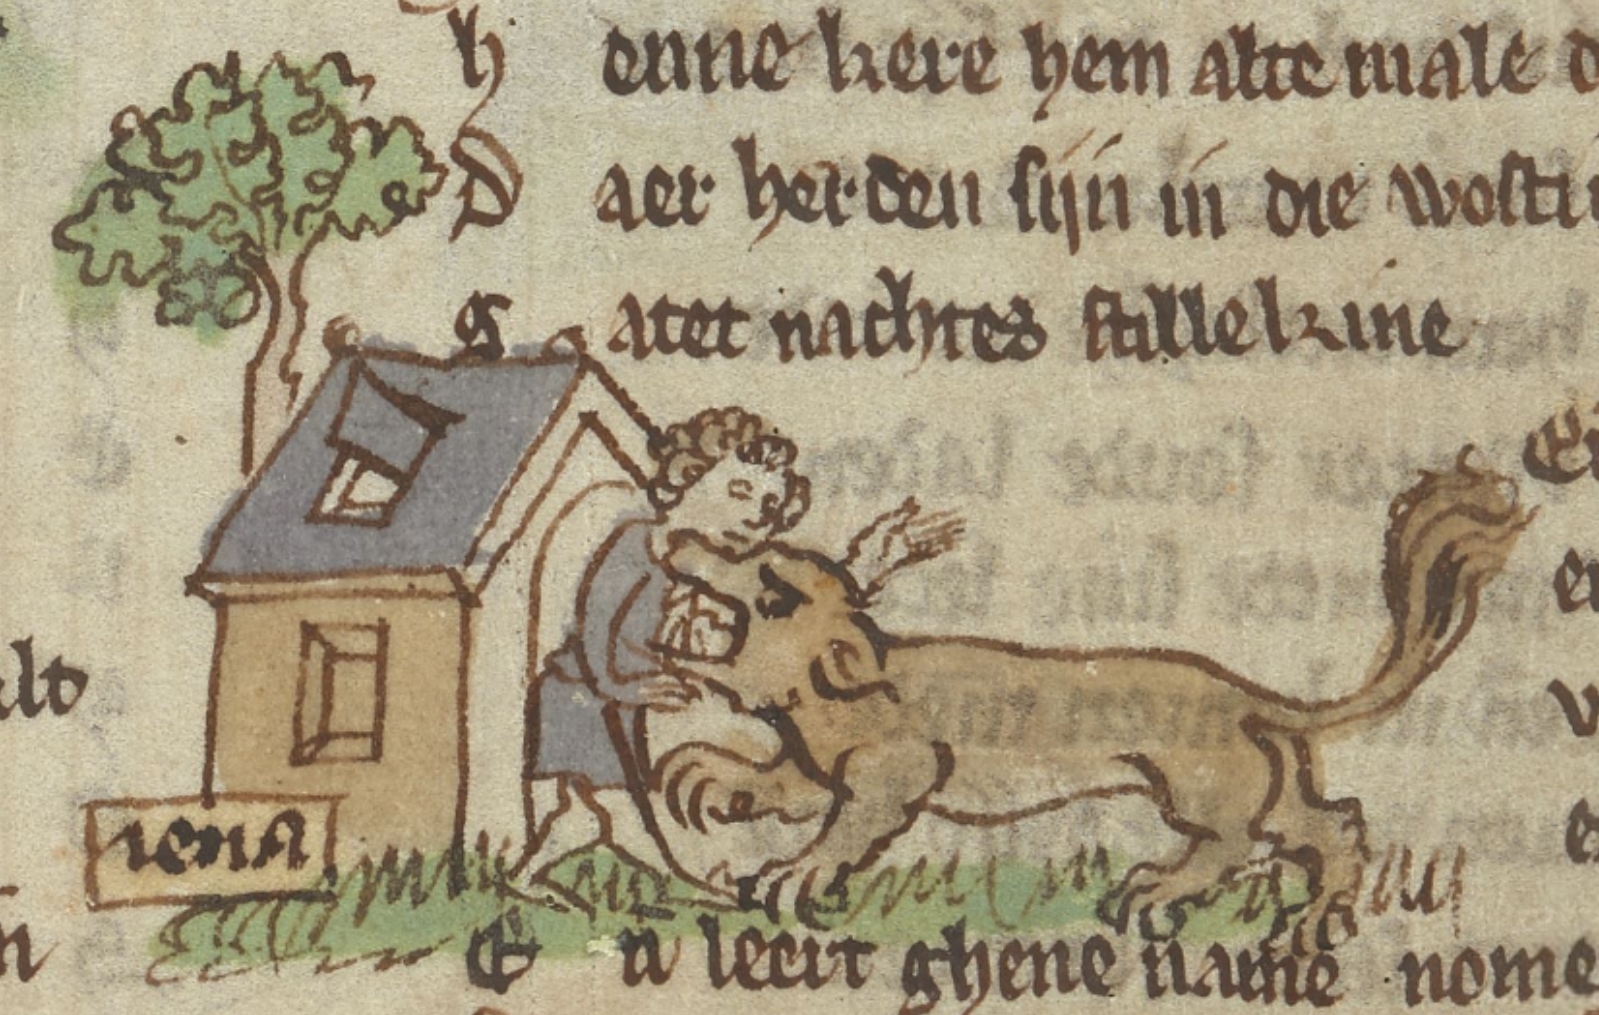 h enne kere hem altemale d
D aer herden sijn in die wosti
S atet nachtes stillekine
alt
iena
E n leert ghene name nome